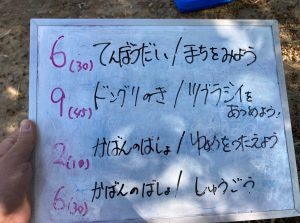 6(30) てんぼうだい/まちをみよう
9(分) ドングリのき/ツブラシイを
あつめよう!
2(10) かばんのばしょ/ゆめをつたえよう
6(30) かばんのばしょ/しゅうごう